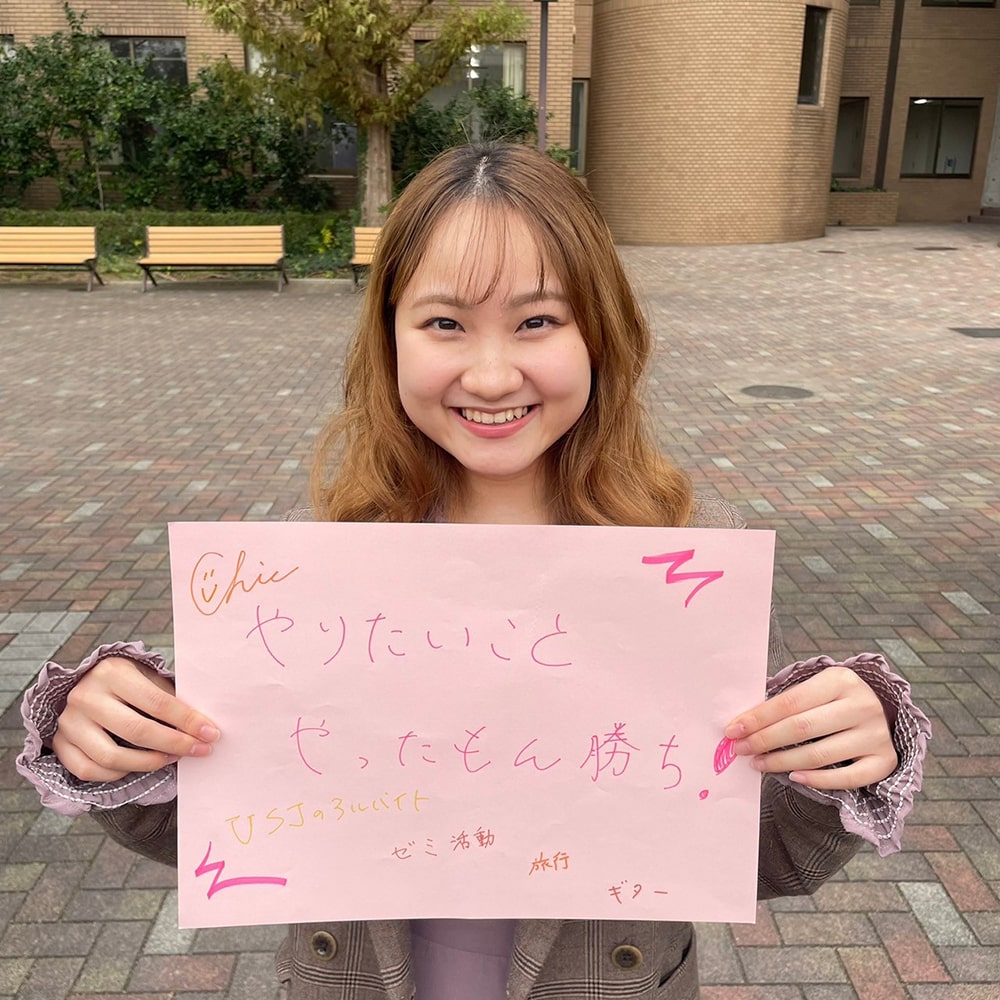 Chic
やりたいこと
やったもん勝ち!
USJのアルバイト
ゼミ活動
旅行
ギター